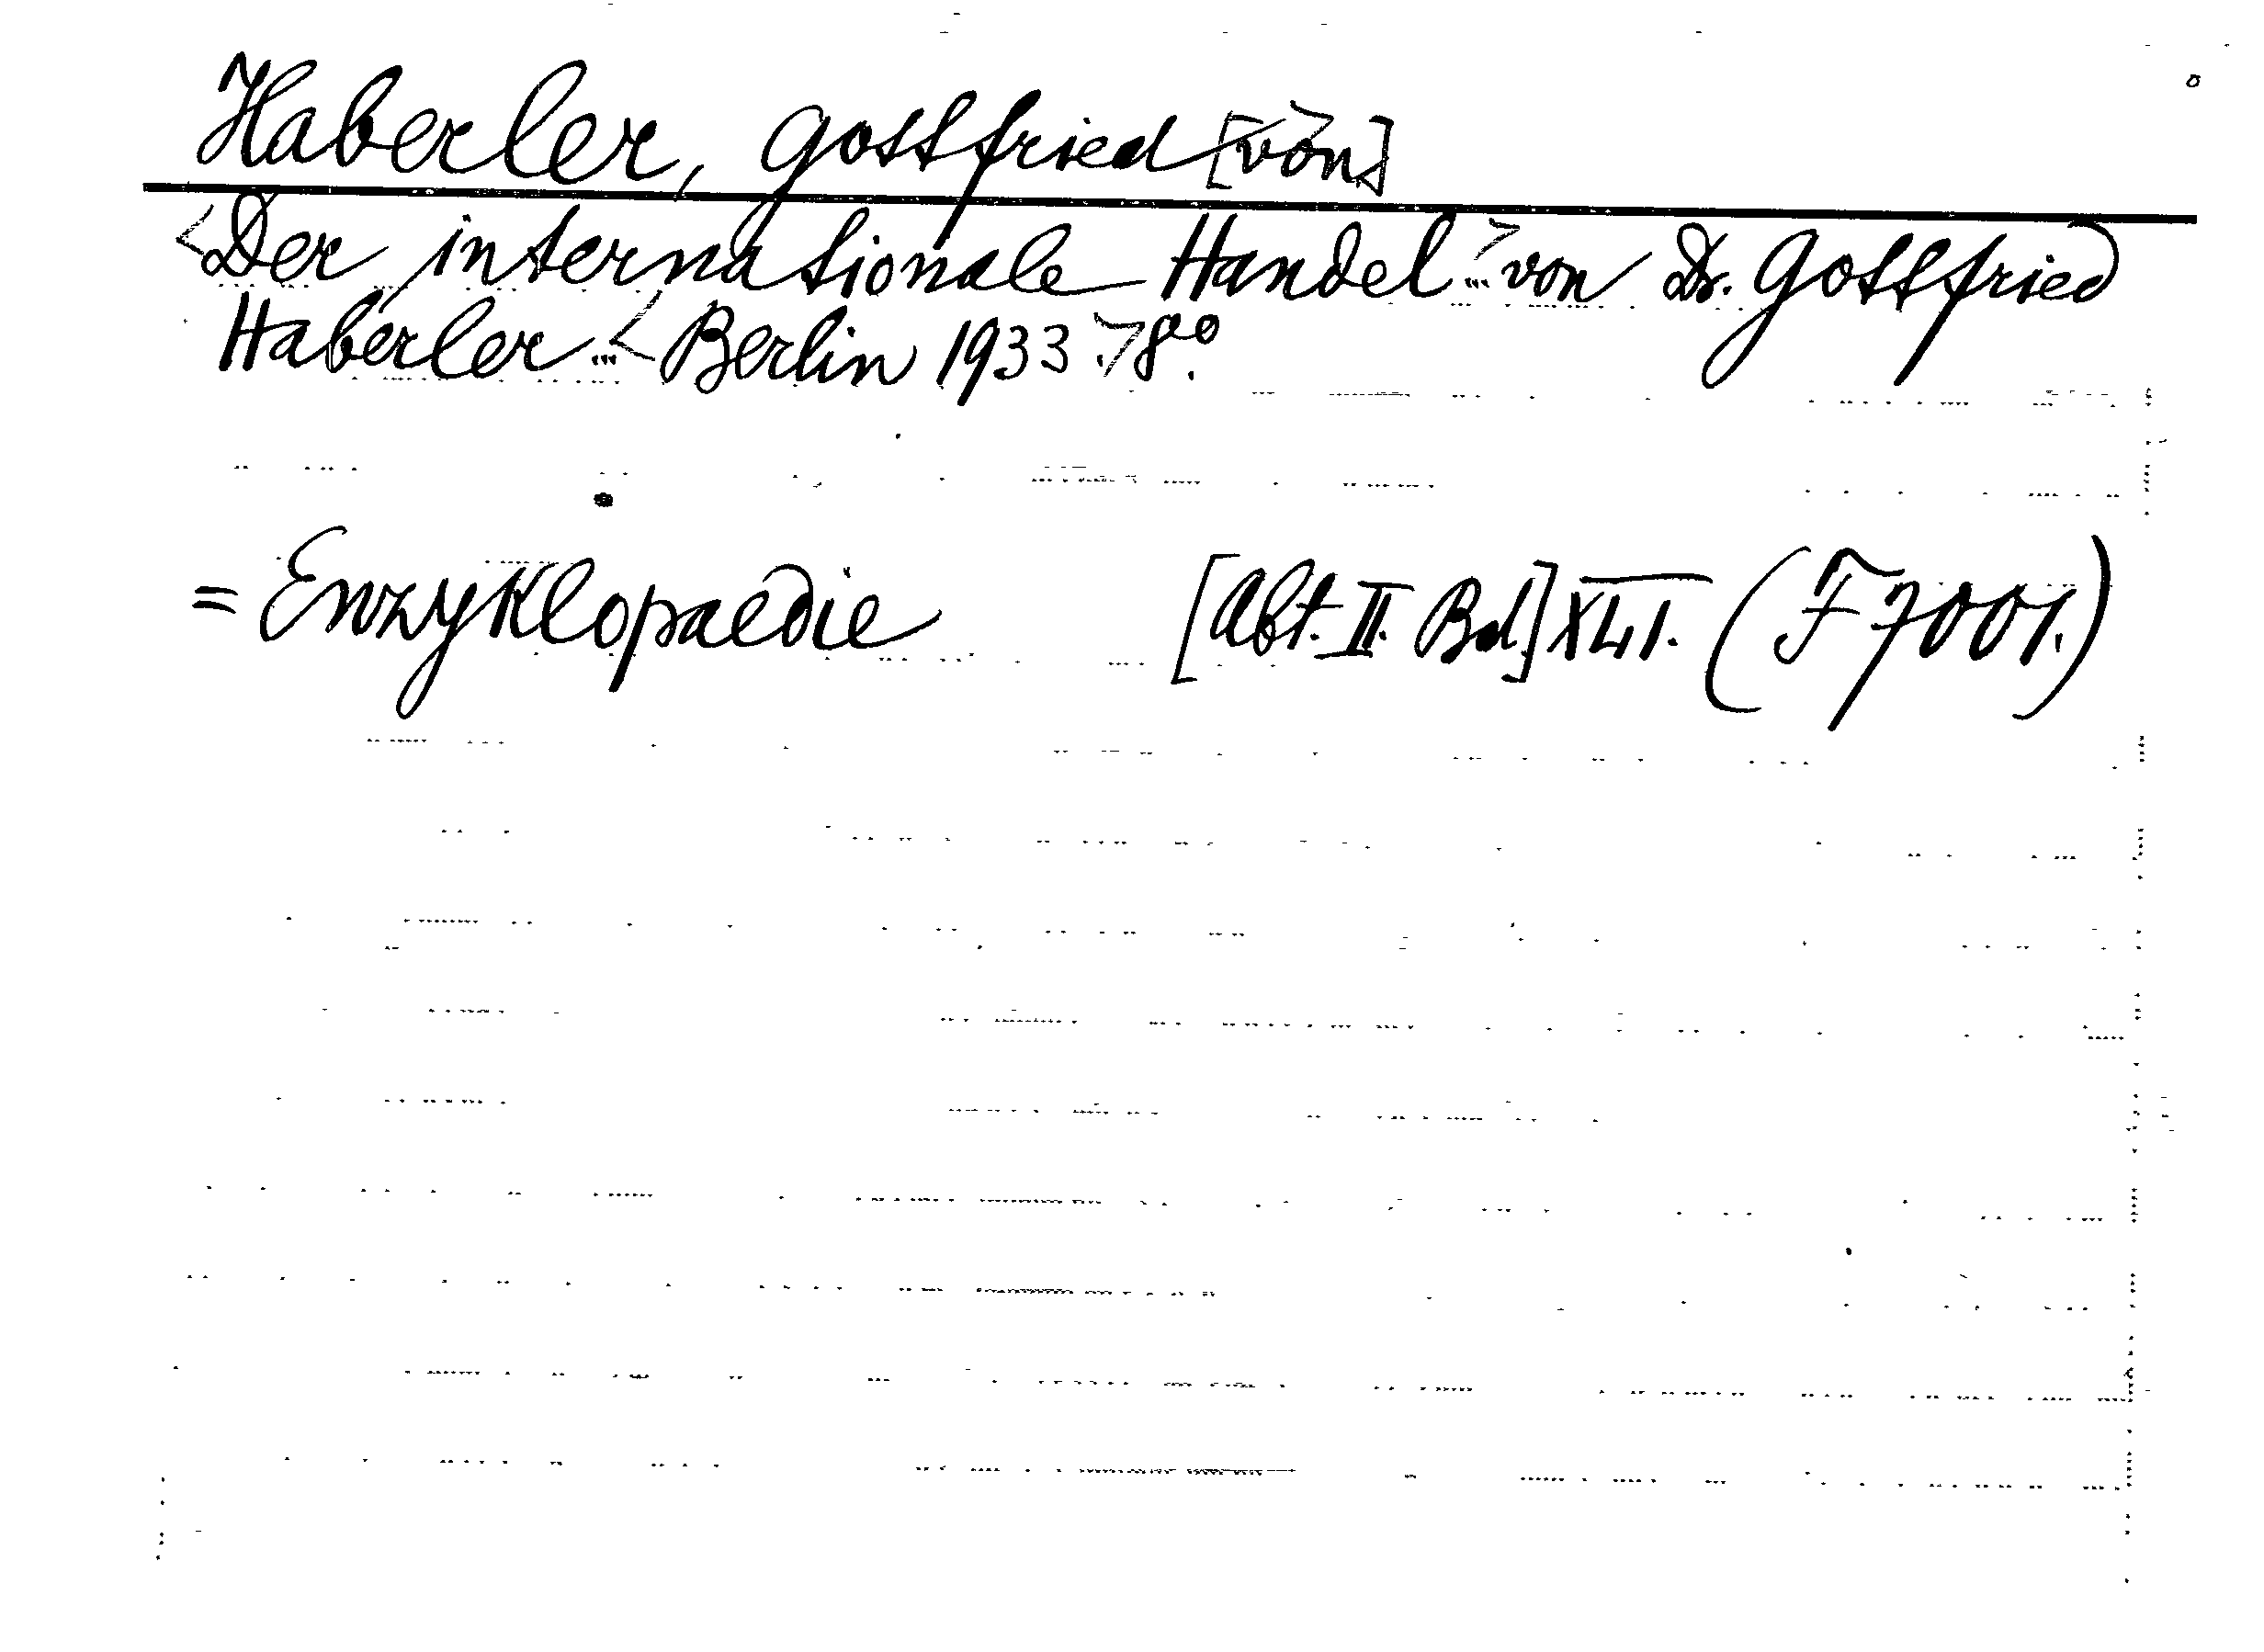 Haberler, Gottfried [von]
<Der internationale Handel> ... von Dr. Gottfried
Haberler ... <Berlin 1933.> 8°.
= Enzyklopaedie [Abt. II. Bd.] XLI. (F 7001.)